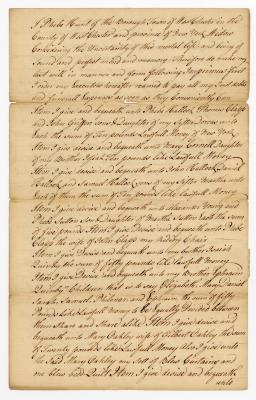 I Phebe Hunt of the Borough Town of West Chester in the
County of West Chester and province of New York Widow
Considering the Uncertainty of this mortal life and being of
Sound and perfect mind and memory Therefore do make my
last will in manner and form following Imprimus first
I order my Executors hereafter named to pay all my Just debts
and funerall Expences as soon as they Conveniently Can
Item I give and bequeath unto Phebe Hallett, Thomas Clapp
and John Griffin Sons Daughter of my Sister
each the sum of Ten pounds Lawfull Money of New York
Item I give devise and bequeath unto Mary Cornell Daughter
of my Brother Ten pounds like Lawfull Money
Item I give devise and bequeath unto John Hallett, Daniel
Hallett and Samuel Hallett Sons of my Sister unto
Each of them the sum of Ten pounds like Lawfull Money
Item I give devise and bequeath unto Alexander Young and
Phebe Sutton Daughter of Martha Sutton Each the sum
of five pounds Item I give Devise and bequeath unto Phebe
Clapp the wife of Silas Clapp my Riding Chair
Item I give Devise and bequeath unto my brother Josiah
Quinby the sum of fifty pounds like Lawfull Money
Item I give Devise and bequeath unto my Brother Ephraim
Quinbys Children that is to say Elizabeth, Mary, Daniel
Sarah, Samuel, and Ephraim the sum of fifty
Pounds like Lawfull Money to be Equally Divided between
them Share and Share alike Item I give devise and
bequeath unto Mary Oakley wife of Gilbert Oakley the sum
of Twenty pounds like Lawfull Money Also I give unto
the Said Mary Oakley my Sett of Blew Curtains and
one blew bed Quilt Item I give devise and bequeath
unto